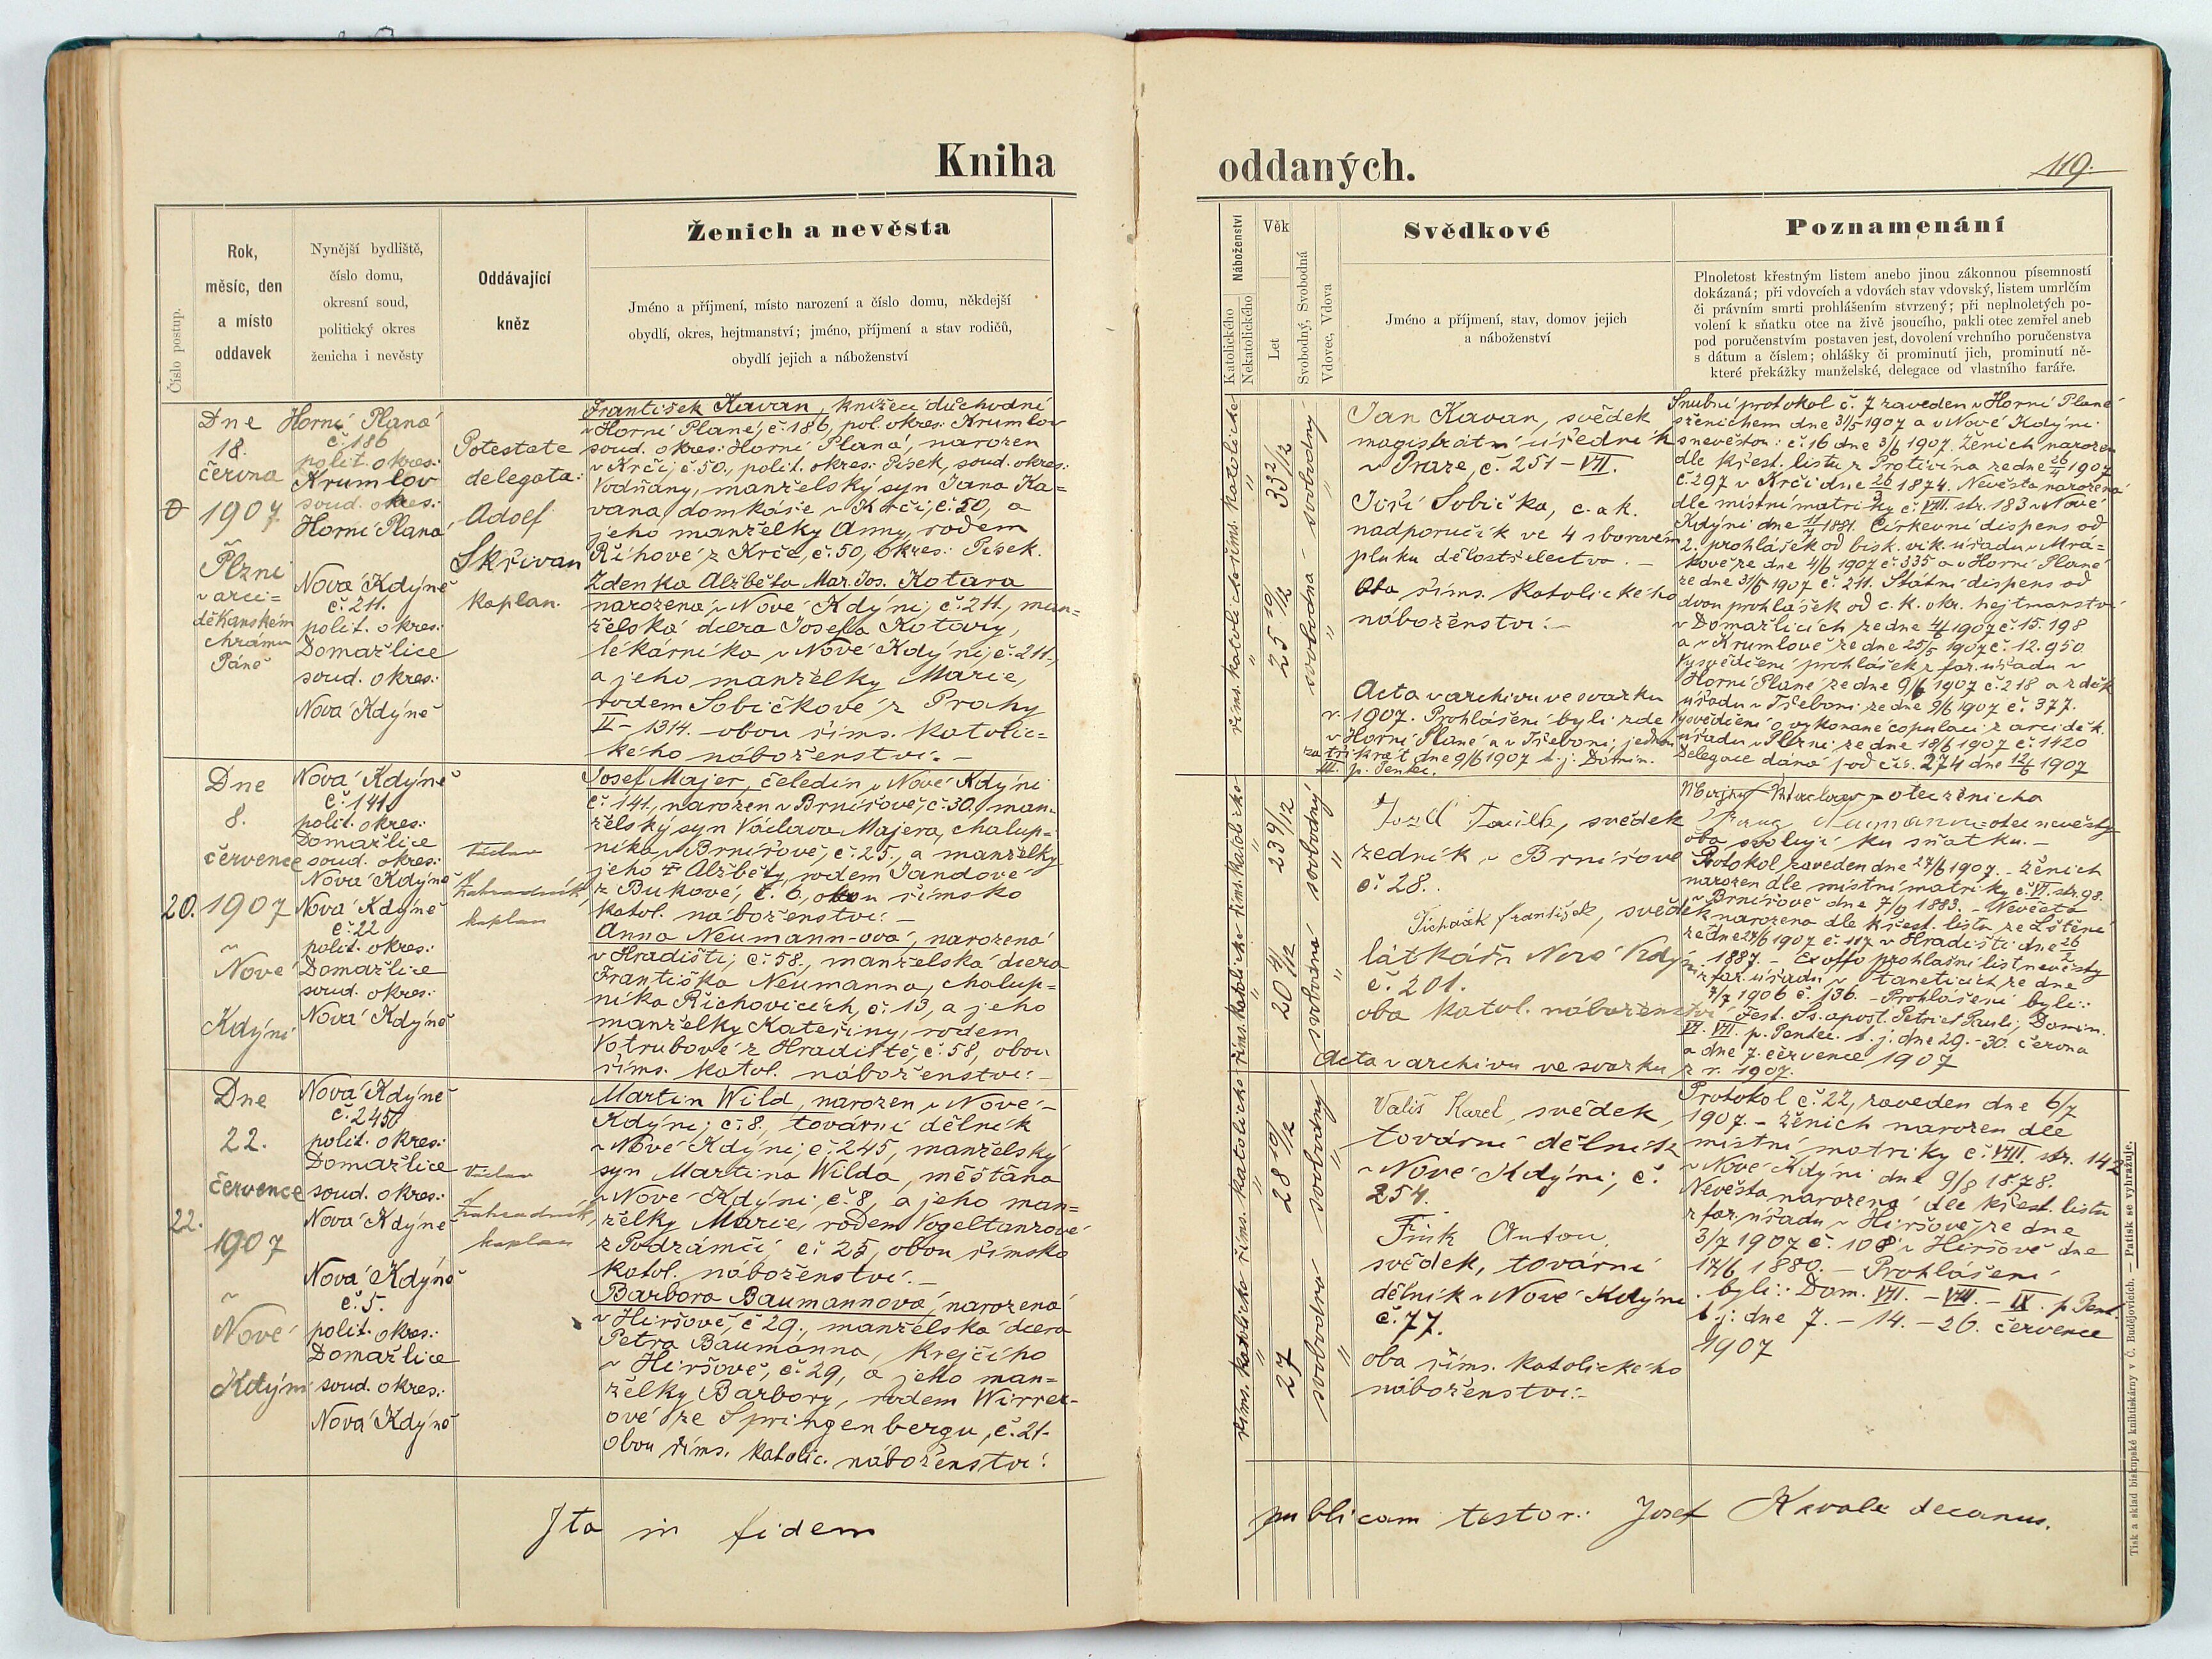 Kniha
oddaných.
119.
Číslo postup.
Rok,
měsíc, den
a místo
oddavek
Nynější bydliště,
číslo domu,
okresní soud,
politický okres
ženicha i nevěsty
Oddávající
kněz
Ženich a nevěsta
Jméno a příjmení, místo narození a číslo domu, někdejší
obydlí, okres, hejtmanství; jméno, příjmení a stav rodičů,
obydlí jejich a náboženství
Náboženství
Katolického
Nekatolického
Věk
Let
Svobodný, Svobodná
Vdovec, Vdova
Svědkové
Jméno a příjmení, stav, domov jejich
a náboženství
Poznamenání
Plnoletost křestným listem anebo jinou zákonnou písemností
dokázaná; při vdovcích a vdovách stav vdovský, listem umrlčím
či právním smrti prohlášením stvrzený; při neplnoletých po-
volení k sňatku otce na živě jsoucího, pakli otec zemřel aneb
pod poručenstvím postaven jest, dovolení vrchního poručenstva
s dátum a číslem; ohlášky či prominutí jich, prominutí ně-
které překážky manželské, delegace od vlastního faráře.
Dne
18.
června
1907
Plzni
v arci=
děkanském
chrámu
Páně
Horní Planá
č. 186
polit. okres:
Krumlov
soud. okres:
Horní Planá
Nová Kdýně
č. 211.
polit. okres:
Domažlice
soud. okres:
Nová Kdýně
Potestate
delegata:
Adolf
Skřivan
kaplan.
František Kavan, knížecí důchodní
v Horní Plané, č. 186, pol. okres: Krumlov
soud. okres: Horní Planá, narozen
v Krči, č. 50., polit. okres: Písek, soud. okres:
Vodňany, manželský syn Jana Ka=
vana domkáře v Krči, č. 50, a
jeho manželky Anny, rodem
Říhové z Krče, č. 50, okres: Písek.
Zdenka Alžběta Mar. Jos. Kotara
narozena v Nové Kdýni, č. 211., man=
želská dcera Josefa Kotary,
lékárníka v Nové Kdýni, č. 211.,
a jeho manželky Marie,
rodem Sobičkové z Prahy
II – 1314. – obou říms. katolic=
kého náboženství. –
říms. katolické
33 2/12
svobodný
říms. katolické
25 10/12
svobodná
Jan Kavan, svědek
magistrátní úředník
v Praze, č. 251 – VII.
Jiří Sobička, c. a k.
nadporučík ve 4 sborovém
pluku dělostřelectva. –
Oba říms. katolického
náboženství. –
Acta v archivu ve svazku
r. 1907. Prohlášení byli: zde
v Horní Plané a v Třeboni: jednou
za třikrát dne 9/6 1907 t. j. Domin.
III. p. Pentec.
Snubní protokol č. 7 zaveden v Horní Plané
s ženichem dne 31/5 1907 a v Nové Kdýni
s nevěstou: č. 16 dne 3/6 1907. Ženich narozen
dle křest. listu z Protivína ze dne 26/4 1907
č. 297 v Krči dne 26/3 1874. Nevěsta narozena
dle místní matriky č. VIII. str. 183 v Nové
Kdýni dne 11/7 1881. Církevní dispens od
2. prohlášek od bisk. vik. úřadu v Mrá=
kově ze dne 4/6 1907 č. 335 a v Horní Plané
ze dne 31/5 1907 č. 211. Státní dispens od
dvou prohlášek od c. k. okr. hejtmanství
v Domažlicích ze dne 4/6 1907 č. 15.198
a v Krumlově ze dne 25/5 1907 č. 12.950
Vysvědčení prohlášek z far. úřadu v
Horní Plané ze dne 9/6 1907 č. 218 a z děk.
úřadu v Třeboni ze dne 9/6 1907 č. 377.
Vysvědčení o vykonané copulaci z arciděk.
úřadu v Plzni ze dne 18/6 1907 č. 1420
Delegace daná pod čís. 274 dne 12/6 1907
20.
Dne
8.
července
1907
v
Nové
Kdýni
Nová Kdýně
č. 141.
polit. okres:
Domažlice
soud. okres:
Nová Kdýně
Nová Kdýně
č. 22
polit. okres:
Domažlice
soud. okres:
Nová Kdýně
Václav
Zahradník,
kaplan
Josef Majer, čeledín v Nové Kdýni
č. 141., narozen v Brnířově, č. 30., man=
želský syn Václava Majera, chalup=
níka v Brnířově, č. 25., a manželky
jeho † Alžběty, rodem Jandové
z Bukové, č. 6, obou římsko
katol. náboženství. –
Anna Neumann-ová, narozená
v Hradišti, č. 58., manželská dcera
Františka Neumanna, chalup=
níka Říchovicích, č. 13, a jeho
manželky Kateřiny, rodem
Votrubové z Hradiště, č. 58, obou
říms. katol. náboženství. –
říms. katolické
23 9/12
svobodný
říms. katolické
20 4/12
svobodná
Josef, svědek
zedník v Brnířově
č. 28.
František, svědek
látkář v Nové Kdýni
č. 201.
oba katol. náboženství
Acta v archivu ve svazku
z r. 1907.
otec ženicha
otec nevěsty
oba svolují ku sňatku. –
Protokol zaveden dne 27/6 1907. – Ženich
narozen dle místní matriky č. VI. str. 98.
v Brnířově dne 7/9 1883. – Nevěsta
narozena dle křest. listu ze Lštění
ze dne 24/6 1907 č. 117 v Hradišti dne 26/2
1887. – Ex offo prohlašní list nevěsty
z far. úřadu v Tanetticích ze dne
7/7 1906 č. 136. – Prohlášení byli:
Fest. Ss. apost. Petri et Pauli, Domin.
VI. VII. p. Pentec. t. j. dne 29. – 30. června
a dne 7. července 1907
22.
Dne
22.
července
1907
v
Nové
Kdýni
Nová Kdýně
č. 245
polit. okres:
Domažlice
soud. okres:
Nová Kdýně
Nová Kdýně
č. 5.
polit. okres:
Domažlice
soud. okres:
Nová Kdýně
Václav
Zahradník,
kaplan
Martin Wild, narozen v Nové
Kdýni, č. 8., tovární dělník
v Nové Kdýni, č. 245, manželský
syn Martina Wilda, měšťana
v Nové Kdýni, č. 8, a jeho man=
želky Marie, rodem Vogeltanzové
z Podzámčí, č. 25, obou římsko
katol. náboženství. –
Barbora Baumannová, narozená
v Hiršově, č. 29., manželská dcera
Petra Baumanna, krejčího
v Hiršově, č. 29, a jeho man=
želky Barbory, rodem Wirrer-
ové ze Springenbergu, č. 21.
obou říms. katolic. náboženství.
říms. katolické
28 10/12
svobodný
říms. katolické
27
svobodná
Vališ Karel, svědek,
tovární dělník
v Nové Kdýni, č.
254.
Fink Anton,
svědek, tovární
dělník v Nové Kdýni
č. 77.
oba říms. katolického
náboženství. –
Protokol č. 22, zaveden dne 6/7
1907. – Ženich narozen dle
místní matriky č. VIII. str. 142
v Nové Kdýni dne 9/8 1878.
Nevěsta narozená dle křest. listu
z far. úřadu v Hiršově ze dne
3/7 1907 č. 108 v Hiršově dne
17/6 1880. – Prohlášení
byli: Dom. VII. – VIII. – IX. p. Pent.
t. j. dne 7. – 14. – 26. července
1907
Ita in fidem
publicam testor: Josef Kavale decanus.
Tisk a sklad biskupské knihtiskárny v Č. Budějovicích. — Patisk se vyhražuje.